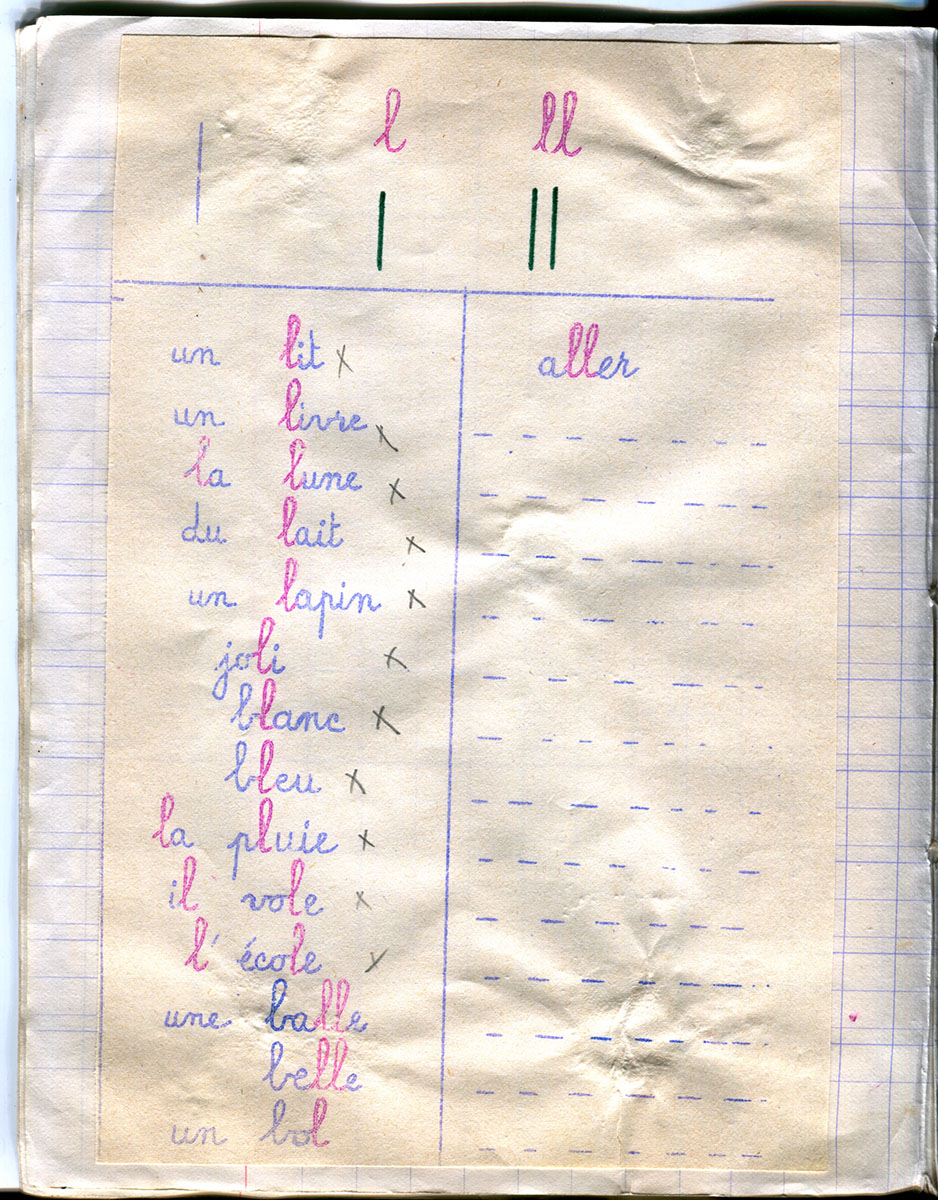 l ll
un lit x aller
un livre x
la lune x
du lait x
un lapin x
joli x
blanc x
bleu x
la pluie x
il vole x
l'école x
une balle
belle
un bol